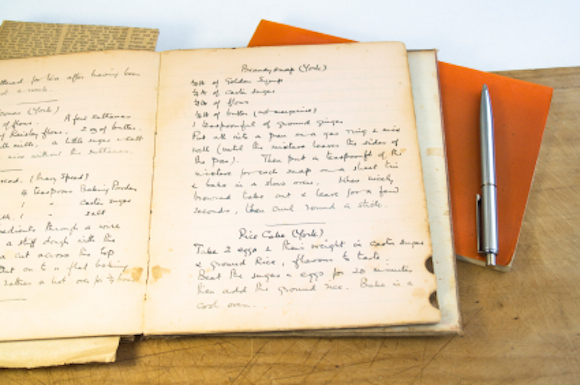 for tea after having been
a week.
(York)
of flour. A few sultanas
of Paisley flour, 2 oz of butter.
milk, a little sugar & salt
nice without the sultanas.
(Mary Speed)
4 teaspoons Baking Powder
1 " castor sugar
1 " salt
through a
a stiff dough with the
a cut across the top
on to a flat baking
rather a hot oven for ½ hour
Brandysnap (York)
¼ lb of Golden Syrup
¼ lb of castor sugar
¼ lb of flour
¼ lb of butter (not margarine)
1 teaspoonful of ground ginger
Put all into a pan on a gas ring & mix
well (until the mixture leaves the sides of
the pan). Then put a teaspoonful of the
mixture for each snap on a sheet tin
& bake in a slow oven. When nicely
browned take out & leave for a few
seconds, then curl round a stick.
Rice Cake (York)
Take 2 eggs & their weight in castor sugar
& ground Rice, flavour to taste.
Beat the sugar & eggs for 20 minutes
then add the ground rice. Bake in a
cool oven.